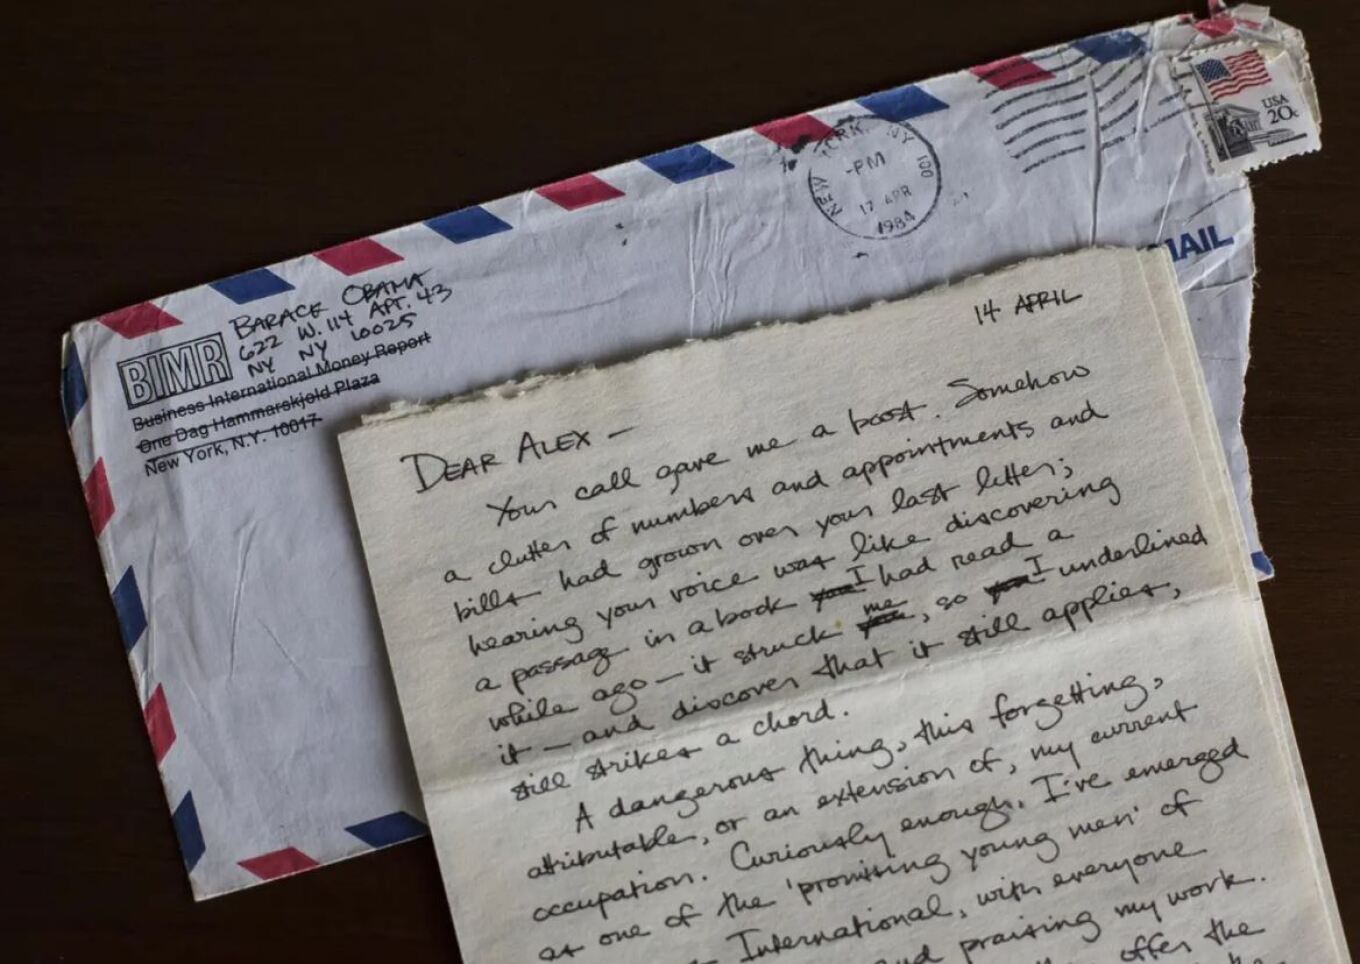 BARACK OBAMA
622 W. 114 APT. 43
NY NY 10025
BIMR
Business International Money Report
One Dag Hammarskjold Plaza
New York, N.Y. 10017
NEW YORK, NY 100
-PM
17 APR
1984
USA
20c
MAIL
14 APRIL
DEAR ALEX —
Your call gave me a boost. Somehow
a clutter of numbers and appointments and
bills had grown over your last letter;
hearing your voice was like discovering
a passage in a book you I had read a
while ago — it struck you me, so you I underlined
it — and discover that it still applies,
still strikes a chord.
A dangerous thing, this forgetting,
attributable, or an extension of, my current
occupation. Curiously enough, I've emerged
as one of the 'promising young men' of
International, with everyone
and praising my work.
offer the